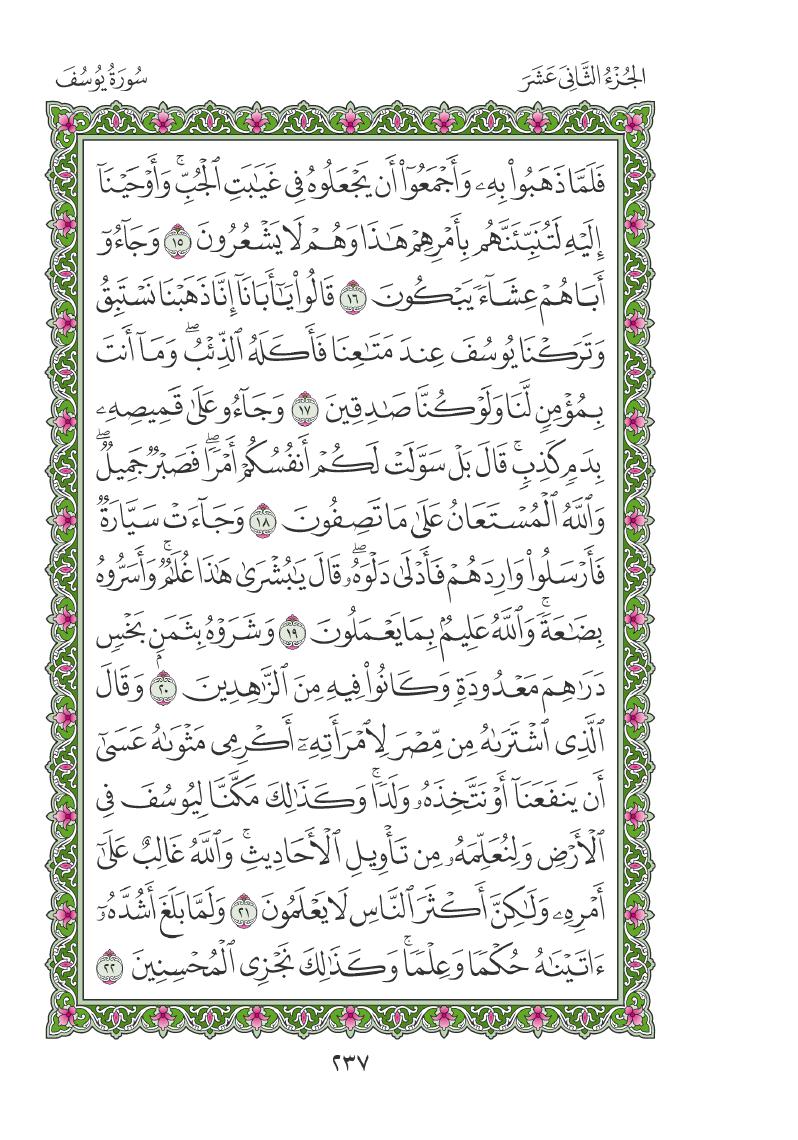 الجُزْءُ الثَّانِىَ عَشَرَ
سُورَةُ يُوسُفَ
فَلَمَّا ذَهَبُوا۟ بِهِۦ وَأَجْمَعُوٓا۟ أَن يَجْعَلُوهُ فِى غَيَـٰبَتِ ٱلْجُبِّ ۚ وَأَوْحَيْنَآ
إِلَيْهِ لَتُنَبِّئَنَّهُم بِأَمْرِهِمْ هَـٰذَا وَهُمْ لَا يَشْعُرُونَ ١٥ وَجَآءُوٓ
أَبَاهُمْ عِشَآءً يَبْكُونَ ١٦ قَالُوا۟ يَـٰٓأَبَانَآ إِنَّا ذَهَبْنَا نَسْتَبِقُ
وَتَرَكْنَا يُوسُفَ عِندَ مَتَـٰعِنَا فَأَكَلَهُ ٱلذِّئْبُ ۖ وَمَآ أَنتَ
بِمُؤْمِنٍ لَّنَا وَلَوْ كُنَّا صَـٰدِقِينَ ١٧ وَجَآءُو عَلَىٰ قَمِيصِهِۦ
بِدَمٍ كَذِبٍ ۚ قَالَ بَلْ سَوَّلَتْ لَكُمْ أَنفُسُكُمْ أَمْرًا ۖ فَصَبْرٌ جَمِيلٌ ۖ
وَٱللَّهُ ٱلْمُسْتَعَانُ عَلَىٰ مَا تَصِفُونَ ١٨ وَجَآءَتْ سَيَّارَةٌ
فَأَرْسَلُوا۟ وَارِدَهُمْ فَأَدْلَىٰ دَلْوَهُۥ ۖ قَالَ يَـٰبُشْرَىٰ هَـٰذَا غُلَـٰمٌ ۚ وَأَسَرُّوهُ
بِضَـٰعَةً ۚ وَٱللَّهُ عَلِيمٌۢ بِمَا يَعْمَلُونَ ١٩ وَشَرَوْهُ بِثَمَنٍۭ بَخْسٍ
دَرَٰهِمَ مَعْدُودَةٍ وَكَانُوا۟ فِيهِ مِنَ ٱلزَّٰهِدِينَ ٢٠ وَقَالَ
ٱلَّذِى ٱشْتَرَىٰهُ مِن مِّصْرَ لِٱمْرَأَتِهِۦٓ أَكْرِمِى مَثْوَىٰهُ عَسَىٰٓ
أَن يَنفَعَنَآ أَوْ نَتَّخِذَهُۥ وَلَدًا ۚ وَكَذَٰلِكَ مَكَّنَّا لِيُوسُفَ فِى
ٱلْأَرْضِ وَلِنُعَلِّمَهُۥ مِن تَأْوِيلِ ٱلْأَحَادِيثِ ۚ وَٱللَّهُ غَالِبٌ عَلَىٰٓ
أَمْرِهِۦ وَلَـٰكِنَّ أَكْثَرَ ٱلنَّاسِ لَا يَعْلَمُونَ ٢١ وَلَمَّا بَلَغَ أَشُدَّهُۥٓ
ءَاتَيْنَـٰهُ حُكْمًا وَعِلْمًا ۚ وَكَذَٰلِكَ نَجْزِى ٱلْمُحْسِنِينَ ٢٢
٢٣٧